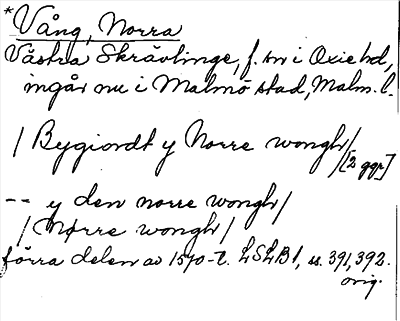 * Vång, Norra
Västra Skrävlinge, f. sn i Oxie hd,
ingår nu i Malmö stad, Malm. l.
/ Bygiordt y Norre wongh / [2 ggr]
-- y den norre wongh /
/ Nørre wongh /
förra delen av 1570-t. LSLB 1, ss. 391, 392.
orig.